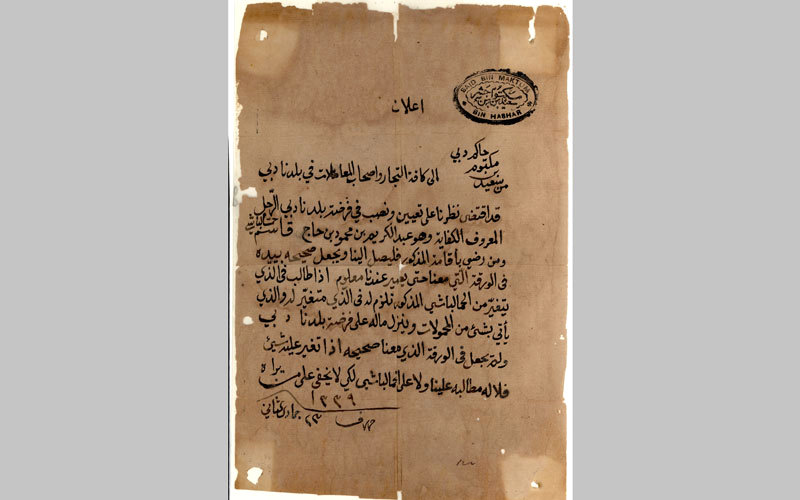 SAID BIN MAKTUM
BIN HASHAR
اعلان
حاكم دبي
من سعيد بن مكتوم
الى كافة التجار واصحاب المعاملات في بلدنا دبي
قد اقتضى نظرنا على تعيين ونصب في فرضة بلدنا دبي الرجل
المعروف الكفاية وهو عبدالكريم بن محمود بن حاج قاسم
ومن رضي باقامة المذكور فليصل الينا ويجعل صحيحه بييده
في الورقة التي معنا حتى يصير عندنا معلوم اذا طالب في الذي
يتغير من الحمالباشي المذكور نلزم له في الذي متغير له والذي
يأتي بشئ من المحمولات وينزل ماله على فرضة بلدنا دبي
ولم يجعل في الورقة الذي معنا صحيحه اذا تغير عليه شئ
فلا له مطالبه علينا ولا على الحمالباشي لكي لا يخفى على من يراه
١٣٣٩
حرر في ٢٣ جمادى الثاني